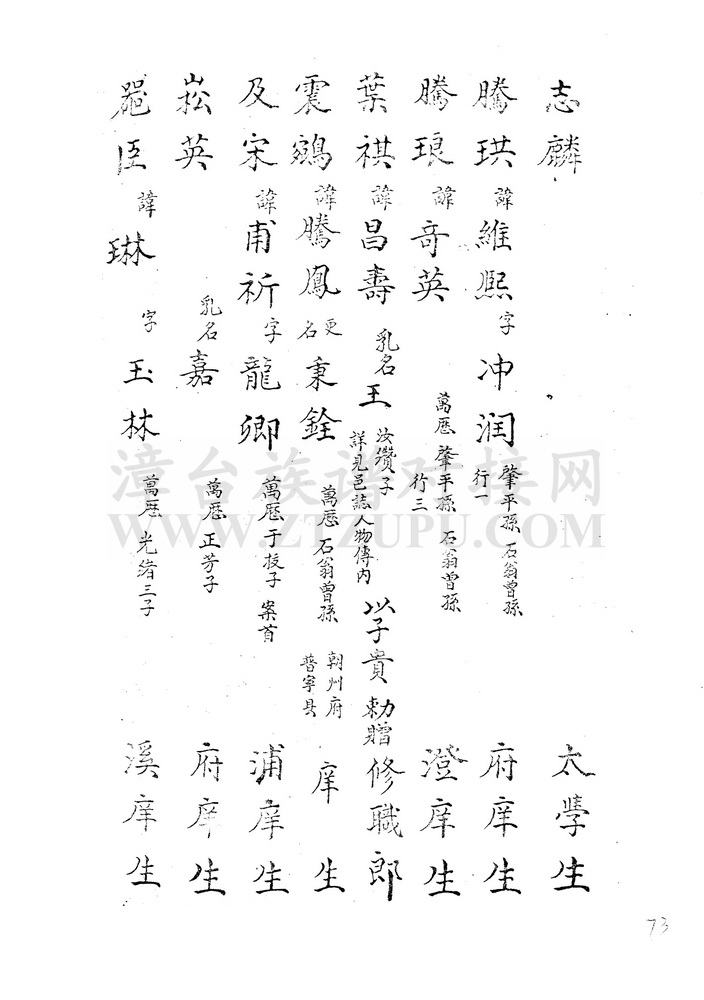 志麟 太學生
騰珙 諱 維熙 字 冲润 肇平孫 石翁曾孫 行一 府庠生
騰琅 諱 奇英 萬厯 肇平孫 石翁曾孫 行三 澄庠生
葉祺 諱 昌壽 乳名 王 汝纘子 詳見邑誌人物傳内 以子貴 勅贈 修職郎
震鵷 諱 騰鳳 更名 秉銓 萬厯 石翁曾孫 朝州府 普寧县 庠生
及宋 諱 甫祈 字 龍卿 萬厯 于技子 案首 浦庠生
崧英 乳名 嘉 萬厯 正芳子 府庠生
臣 諱 琳 字 玉林 萬厯 光緒三子 溪庠生
73
漳台族谱对接网
WWW.ZTZUPU.COM